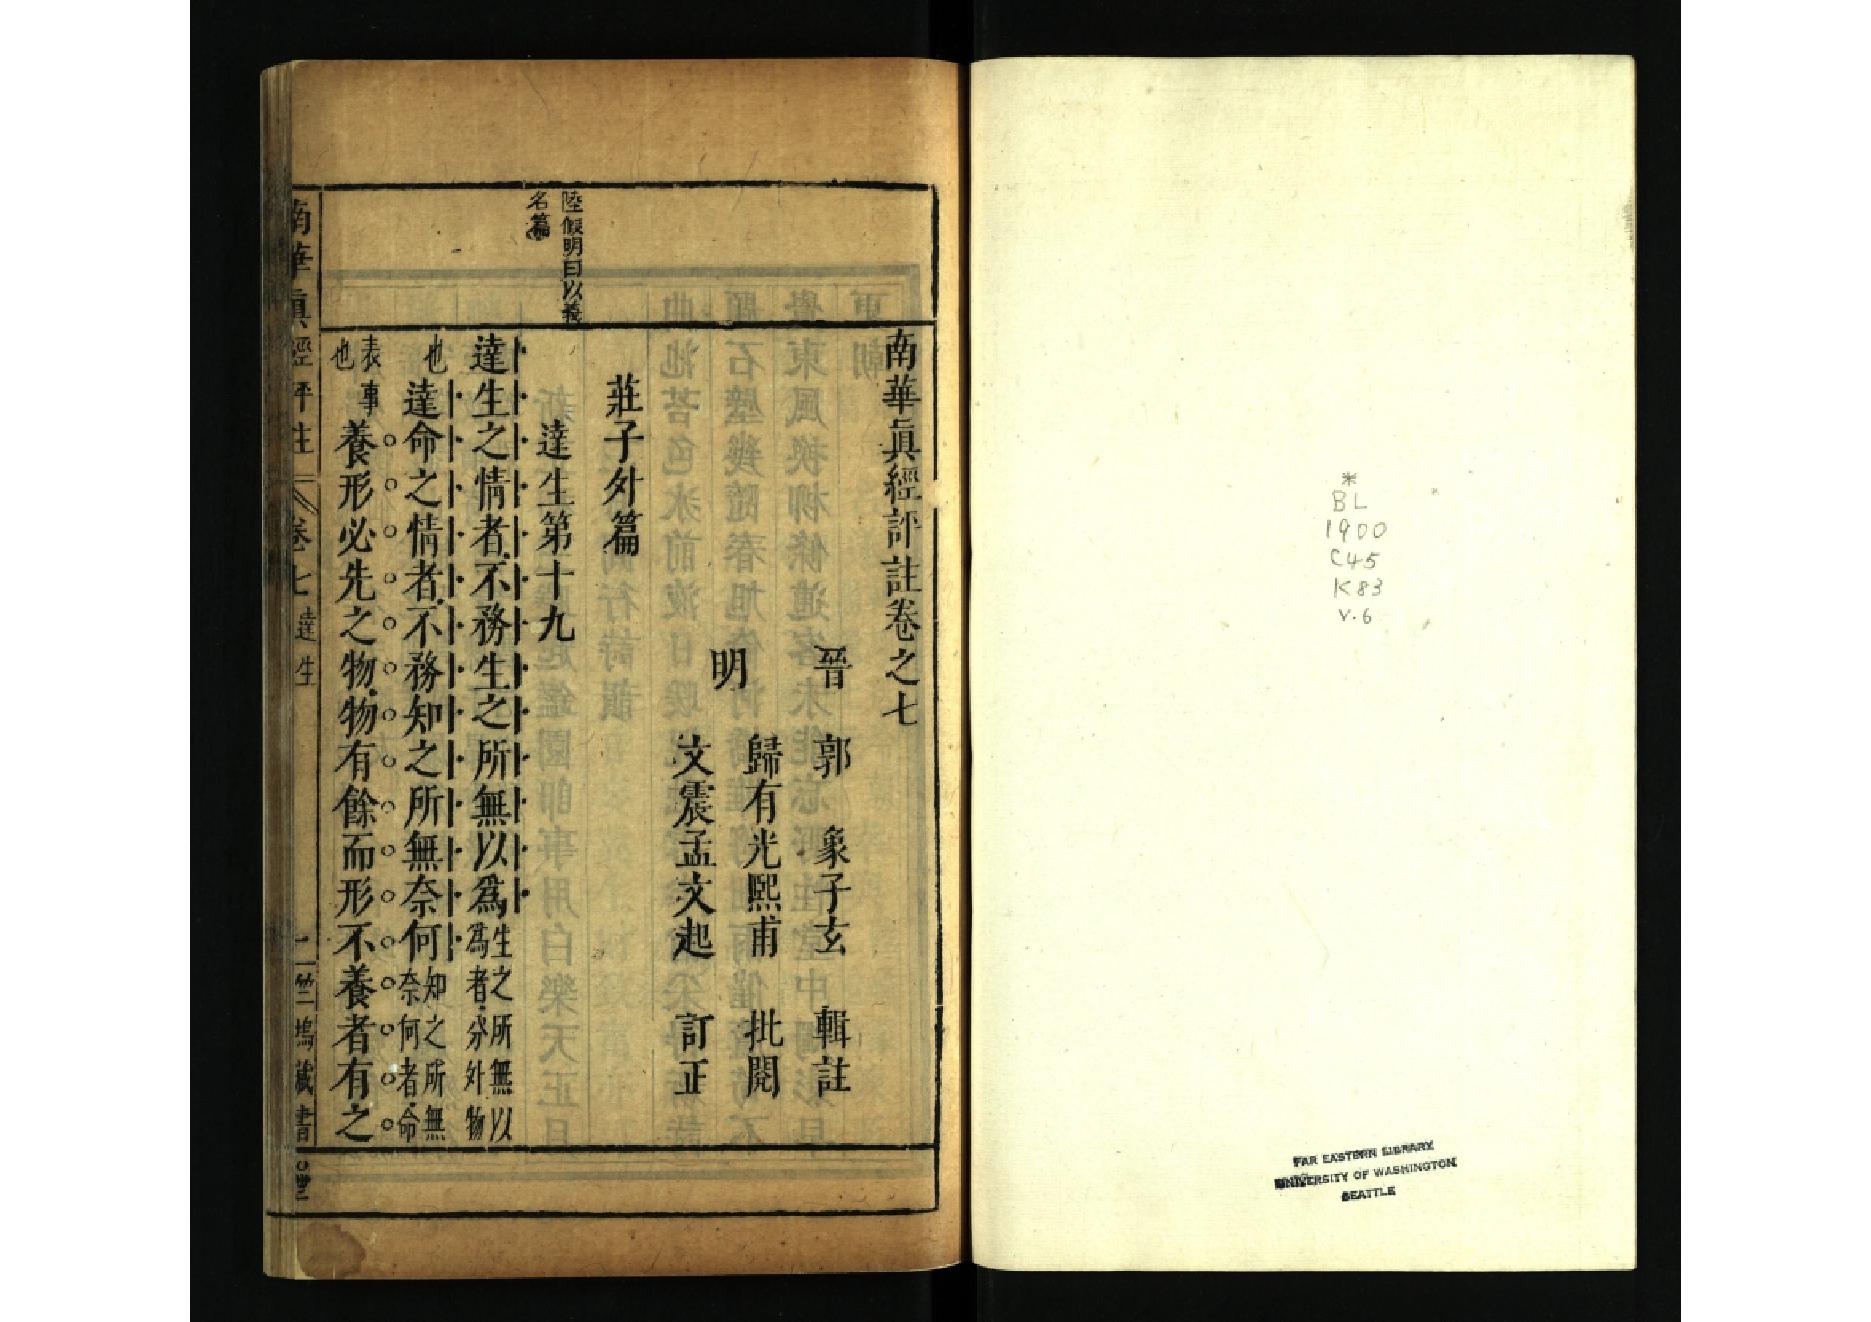 *
BL
1900
C45
K83
v.6
FAR EASTERN LIBRARY
UNIVERSITY OF WASHINGTON
SEATTLE
南華眞經評註卷之七
晉 郭 象子玄 輯註
明
歸有光熙甫 批閱
文震孟文起 訂正
莊子外篇
陸
明曰以義
名篇
達生第十九
達生之情者不務生之所無以爲生之所無以
爲者分外物
也達命之情者不務知之所無奈何知之所無
奈何者命
表事
也養形必先之物物有餘而形不養者有之
南華眞經評註
卷七
達生
竺塢藏書